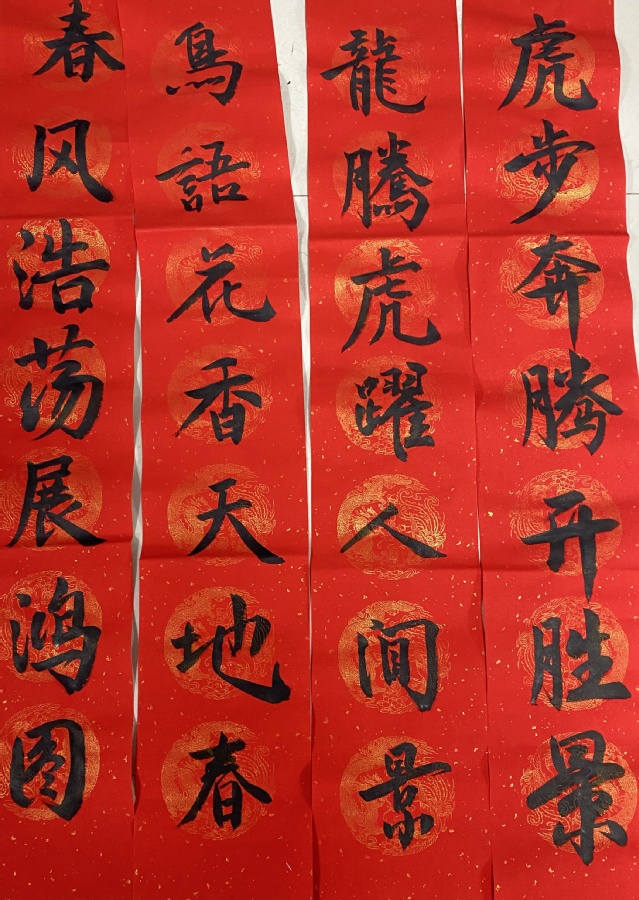 虎步奔腾开胜景
龍騰虎躍人間景
鳥語花香天地春
春风浩荡展鸿图